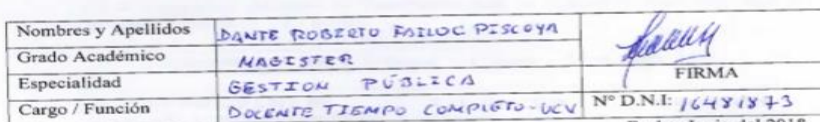 Nombres y Apellidos DANTE ROBERTO FAILOC PISCOYA
Grado Académico MAGISTER
Especialidad GESTION PÚBLICA
FIRMA
Cargo / Función DOCENTE TIEMPO COMPLETO-UCV Nº D.N.I: 16481873